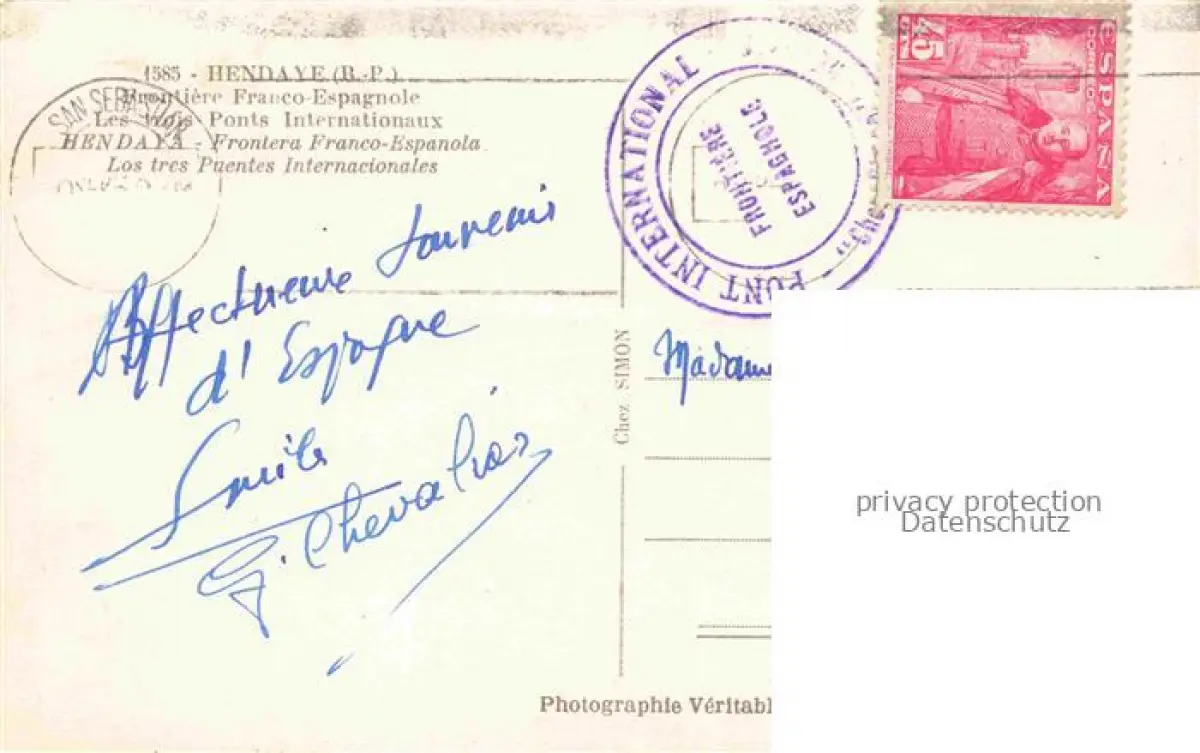 1585 - HENDAYE (B.-P.)
Frontière Franco-Espagnole
Les Trois Ponts Internationaux
HENDAYA - Frontera Franco-Espanola
Los tres Puentes Internacionales
SAN SEBASTIAN
PONT INTERNATIONAL
FRONTIERE
ESPAGNOLE
45
CTS
ESPAÑA
CORREOS
Affectueux souvenir
d'Espagne
Emile
G. Chevalier
Chez SIMON
Madame
privacy protection
Datenschutz
Photographie Véritabl